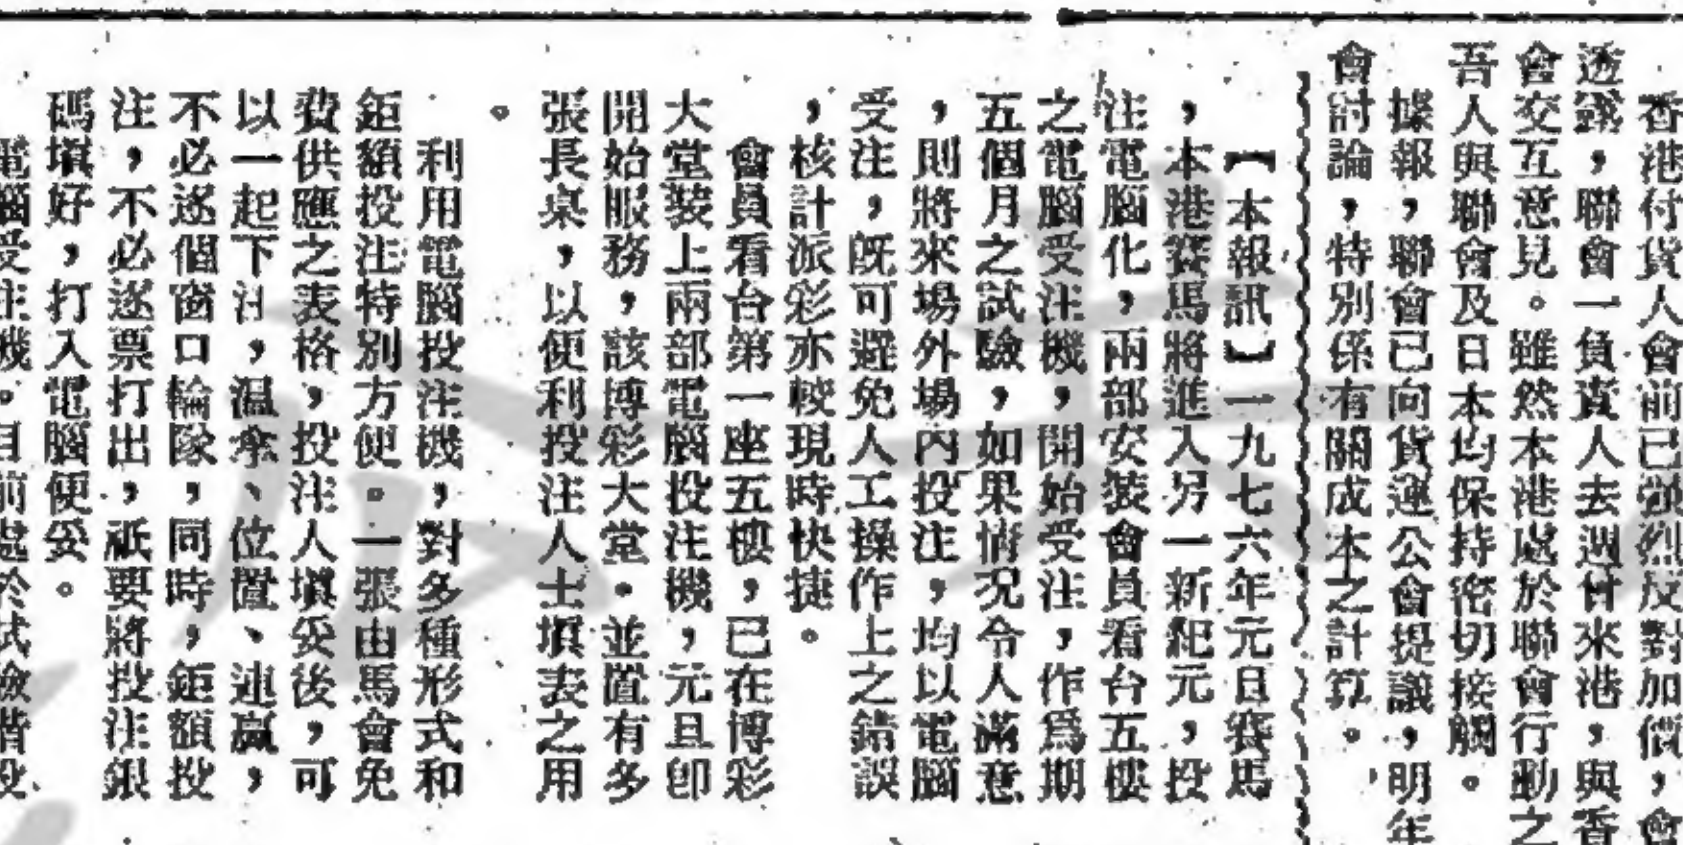 香港付貨人會前已強烈反對加價，會
透露，聯會一負責人去週甘來港，與香
會交互意見。雖然本港處於聯會行動之
吾人與聯會及日本均保持密切接觸。
據報，聯會已向貨運公會提議，明年
會討論，特別係有關成本之計算。
【本報訊】一九七六年元旦賽馬
，本港賽馬將進入另一新紀元，投
注電腦化，兩部安裝會員看台五樓
之電腦受注機，開始受注，作爲期
五個月之試驗，如果情况令人滿意
，則將來場外場內投注，均以電腦
受注，既可避免人工操作上之錯誤
，核計派彩亦較現時快捷。
會員看台第一座五樓，已在博彩
大堂裝上兩部電腦投注機，元旦卽
開始服務，該博彩大堂。並置有多
張長桌，以便利投注人士填表之用
。
利用電腦投注機，對多種形式和
鉅額投注特別方便。一張由馬會免
費供應之表格，投注人填妥後，可
以一起下注，温拿、位置、連贏，
不必逐個窗口輪隊，同時，鉅額投
注，不必逐票打出，祇要將投注銀
碼填好，打入電腦便妥。
電腦受注機。目前處於試驗階段